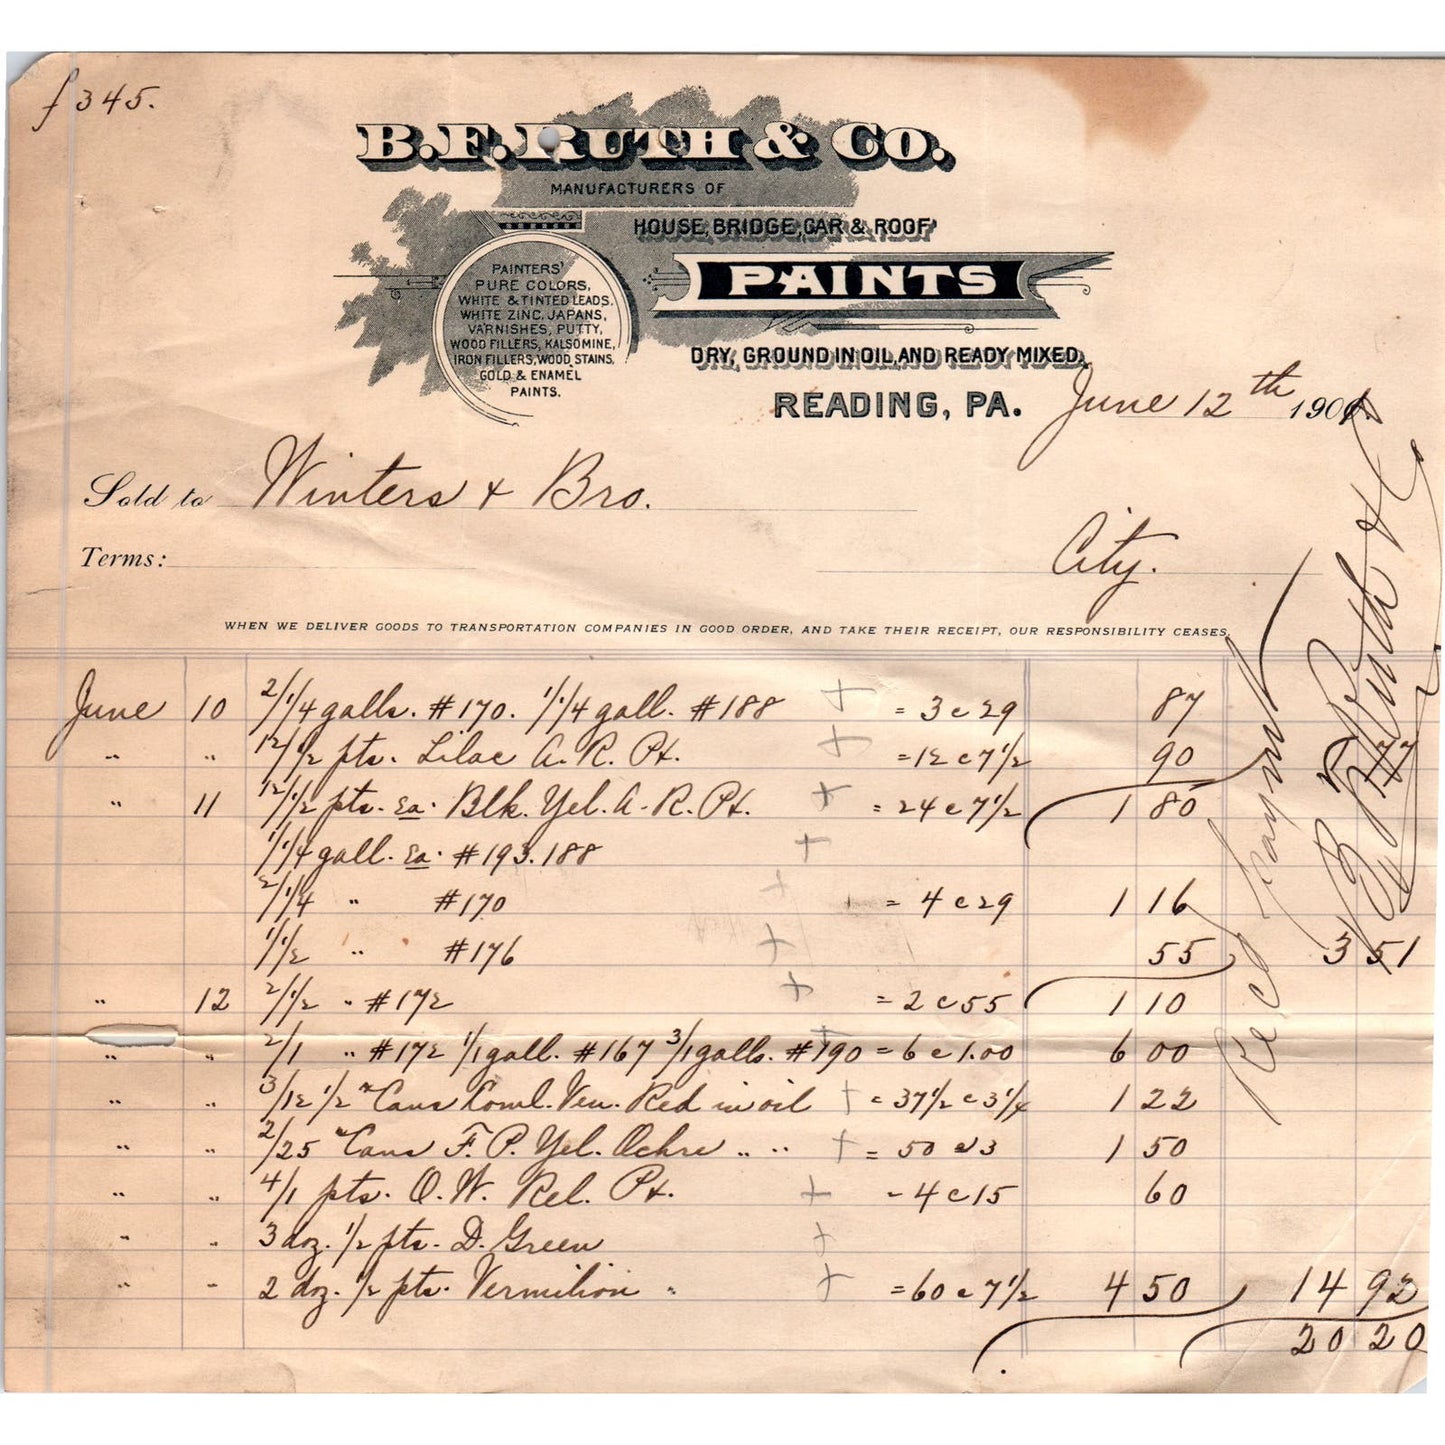 f 345.
B.F. RUTH & CO.
MANUFACTURERS OF
HOUSE, BRIDGE, CAR & ROOF
PAINTS
DRY, GROUND IN OIL, AND READY MIXED.
PAINTERS'
PURE COLORS,
WHITE & TINTED LEADS,
WHITE ZINC, JAPANS,
VARNISHES, PUTTY,
WOOD FILLERS, KALSOMINE,
IRON FILLERS, WOOD STAINS,
GOLD & ENAMEL
PAINTS.
READING, PA. June 12th 1901.
Sold to Winters & Bro.
Terms: City.
WHEN WE DELIVER GOODS TO TRANSPORTATION COMPANIES IN GOOD ORDER, AND TAKE THEIR RECEIPT, OUR RESPONSIBILITY CEASES.
June 10 2/1/4 galls. #170. 1/1/4 gall. #188 + = 3 c 29 87
" " 12/1/2 pts. Lilac A. R. Pt. + = 12 c 7 1/2 90 1 77
" 11 12/1/2 pts. Ea. Blk. Yel. A. R. Pt. + = 24 c 7 1/2 1 80
1/1/4 gall. Ea. #193. 188 +
2/1/4 " #170 + = 4 c 29 1 16
1/1/2 " #176 + 55 3 51
" 12 2/1/2 " #172 + = 2 c 55 1 10
" " 2/1 " #172 1/1 gall. #167 3/1 galls. #190 = 6 c 1.00 6 00
" " 3/12 1/2 " Cans Coml. Ven. Red in oil + = 37 1/2 c 3 1/4 1 22
" " 2/25 " Cans F. P. Yel. Ochre " " + = 50 c 3 1 50
" " 4/1 pts. O. W. Rel. Pt. + = 4 c 15 60
" " 3 doz. 1/2 pts. D. Green +
" " 2 doz. 1/2 pts. Vermilion " + = 60 c 7 1/2 4 50 14 92
20 20
Recd Payment
B. F. Ruth & Co